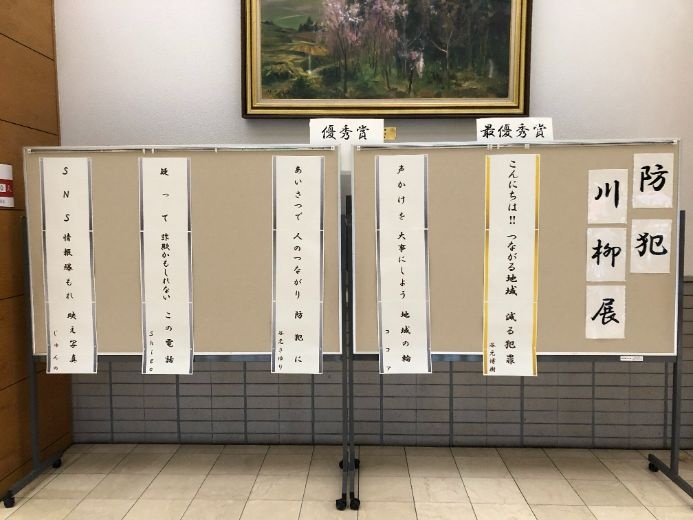 防犯
川柳展
最優秀賞
こんにちは!! つながる地域 減る犯罪
谷元博樹
優秀賞
声かけを 大事にしよう 地域の輪
ココア
あいさつで 人のつながり 防犯に
谷元さゆり
疑って 詐欺かもしれない この電話
Shigo
SNS 情報爆もれ 映え写真
じゅんの